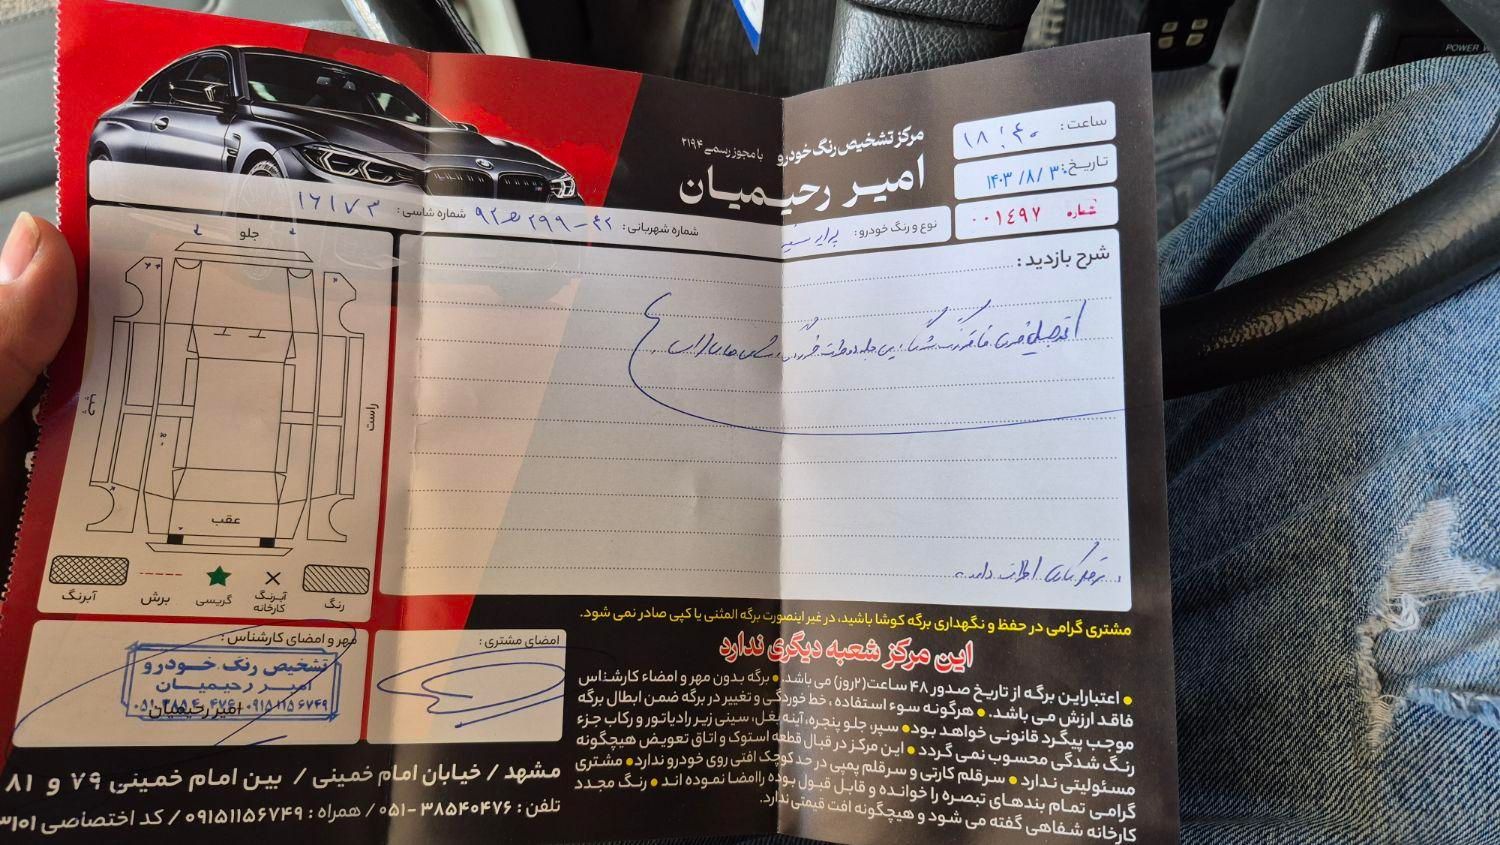 POWER W
مرکز تشخیص رنگ خودرو
با مجوز رسمی ۲۱۹۴
امیر رحیمیان
ساعت: ۱۸:۴۰
تاریخ: ۱۴۰۳/۸/۳۰
شماره ۰۰۱۴۹۷
نوع و رنگ خودرو: پراید سفید
شماره شهربانی: ۴۲ - ۲۹۹ ص ۹۲
شماره شاسی: ۱۶۱۷۳
شرح بازدید:
جلو
چپ
راست
عقب
رنگ
آبرنگ کارخانه
گریسی
برش
آبرنگ
مشتری گرامی در حفظ و نگهداری برگه کوشا باشید، در غیر اینصورت برگه المثنی یا کپی صادر نمی شود.
این مرکز شعبه دیگری ندارد
مهر و امضای کارشناس:
تشخیص رنگ خودرو
امیر رحیمیان
امیر رحیمیان
امضای مشتری:
اعتبار این برگه از تاریخ صدور ۴۸ ساعت(۲روز) می باشد. برگه بدون مهر و امضاء کارشناس
فاقد ارزش می باشد. هرگونه سوء استفاده، خط خوردگی و تغییر در برگه ضمن ابطال برگه
موجب پیگرد قانونی خواهد بود سپر، جلو پنجره، آینه بغل، سینی زیر رادیاتور و رکاب جزء
رنگ شدگی محسوب نمی گردد این مرکز در قبال قطعه استوک و اتاق تعویض هیچگونه
مسئولیتی ندارد سرقلم کارتی و سرقلم پمپی در حد کوچک افتی روی خودرو ندارد مشتری
گرامی تمام بندهای تبصره را خوانده و قابل قبول بوده را امضا نموده اند رنگ مجدد
کارخانه شفاهی گفته می شود و هیچگونه افت قیمتی ندارد.
مشهد / خیابان امام خمینی / بین امام خمینی ۷۹ و 81
تلفن: ۳۸۵۴۰۴۷۶ -۰۵۱ / همراه: ۰۹۱۵۱۱۵۶۷۴۹ / کد اختصاصی ۳۱۰۱